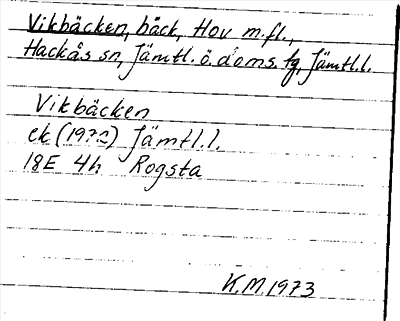 Vikbäcken, bäck, Hov m.fl.,
Hackås sn, Jämtl. ö. doms. fg, Jämtl.l.
Vikbäcken
ek (1972) Jämtl.l.
18E 4h Rogsta
K.M.1973